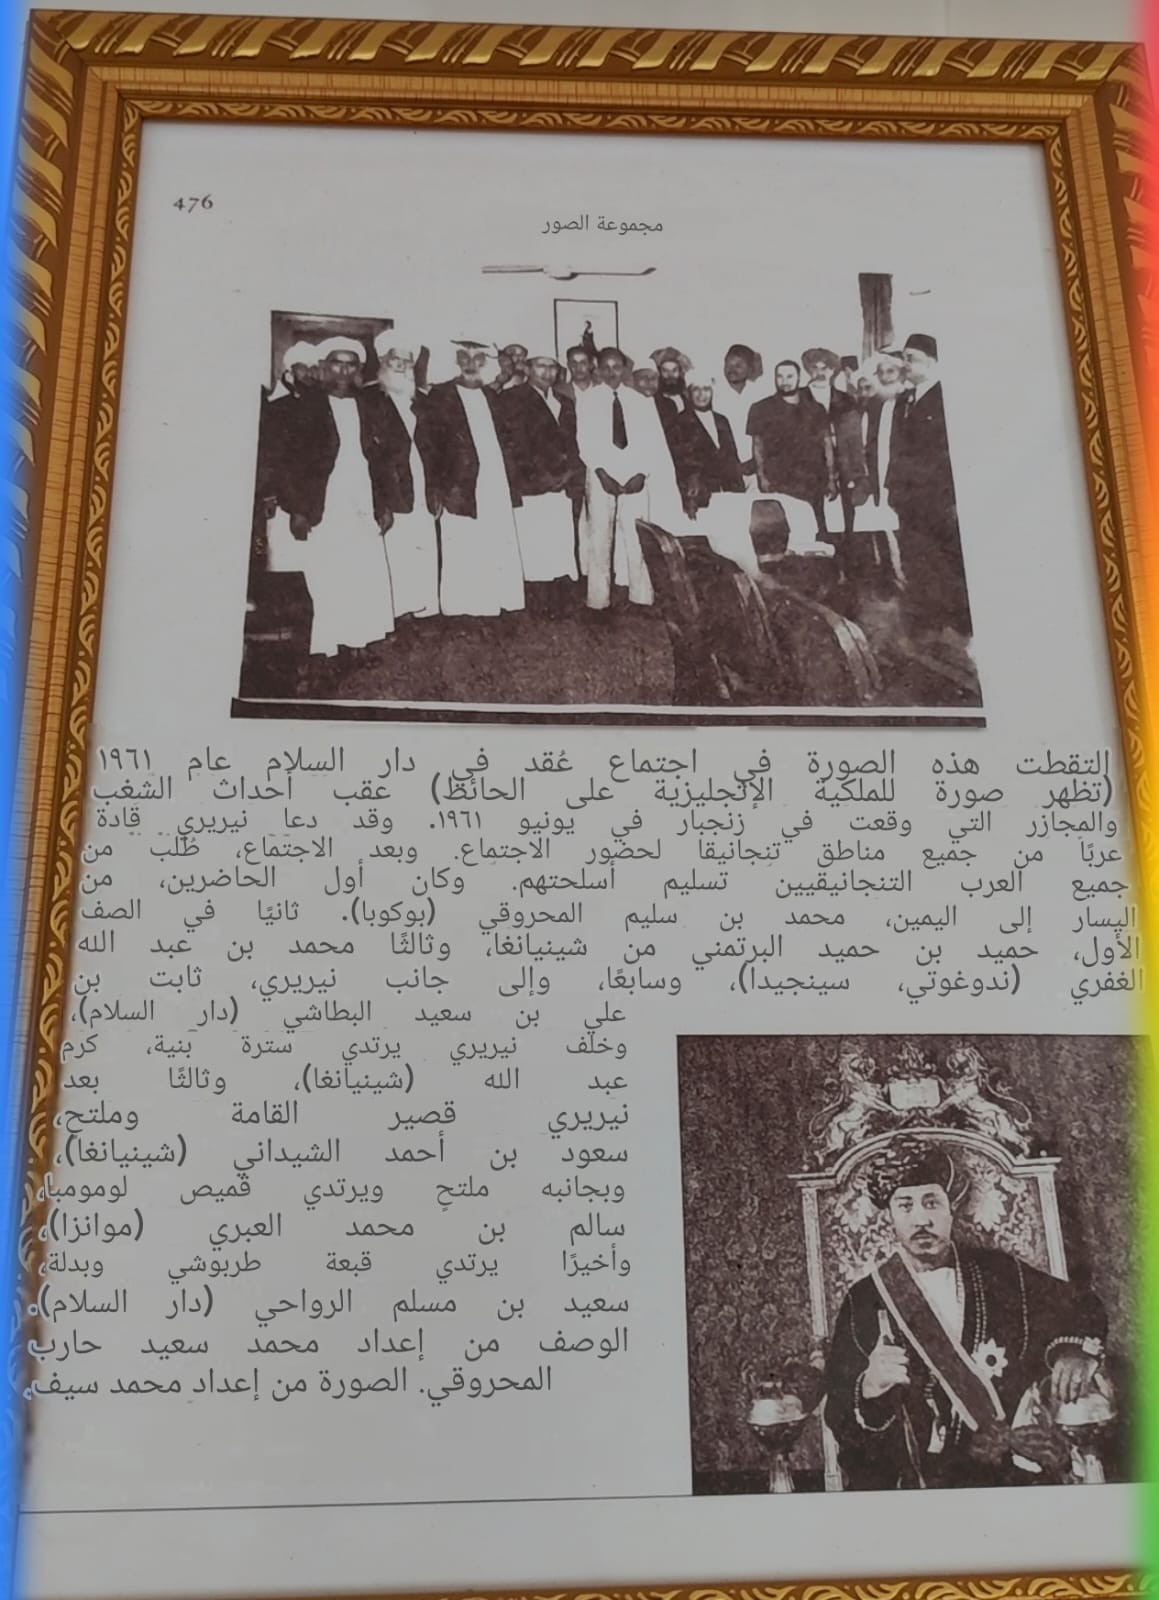 476
مجموعة الصور
التقطت هذه الصورة في اجتماع عُقد في دار السلام عام ١٩٦١
(تظهر صورة للملكية الإنجليزية على الحائط) عقب أحداث الشغب
والمجازر التي وقعت في زنجبار في يونيو ١٩٦١. وقد دعا نيريري قادة
عربًا من جميع مناطق تنجانيقا لحضور الاجتماع. وبعد الاجتماع، طُلب من
جميع العرب التنجانيقيين تسليم أسلحتهم. وكان أول الحاضرين، من
اليسار إلى اليمين، محمد بن سليم المحروقي (بوكوبا). ثانيًا في الصف
الأول، حميد بن حميد البرتمني من شينيانغا، وثالثًا محمد بن عبد الله
الغفري (ندوغوتي، سينجيدا)، وسابعًا، وإلى جانب نيريري، ثابت بن
علي بن سعيد البطاشي (دار السلام)،
وخلف نيريري يرتدي سترة بنية، كرم
عبد الله (شينيانغا)، وثالثًا بعد
نيريري قصير القامة وملتح،
سعود بن أحمد الشيداني (شينيانغا)،
وبجانبه ملتحٍ ويرتدي قميص لومومبا،
سالم بن محمد العبري (موانزا)،
وأخيرًا يرتدي قبعة طربوشي وبدلة،
سعيد بن مسلم الرواحي (دار السلام).
الوصف من إعداد محمد سعيد حارب
المحروقي. الصورة من إعداد محمد سيف.